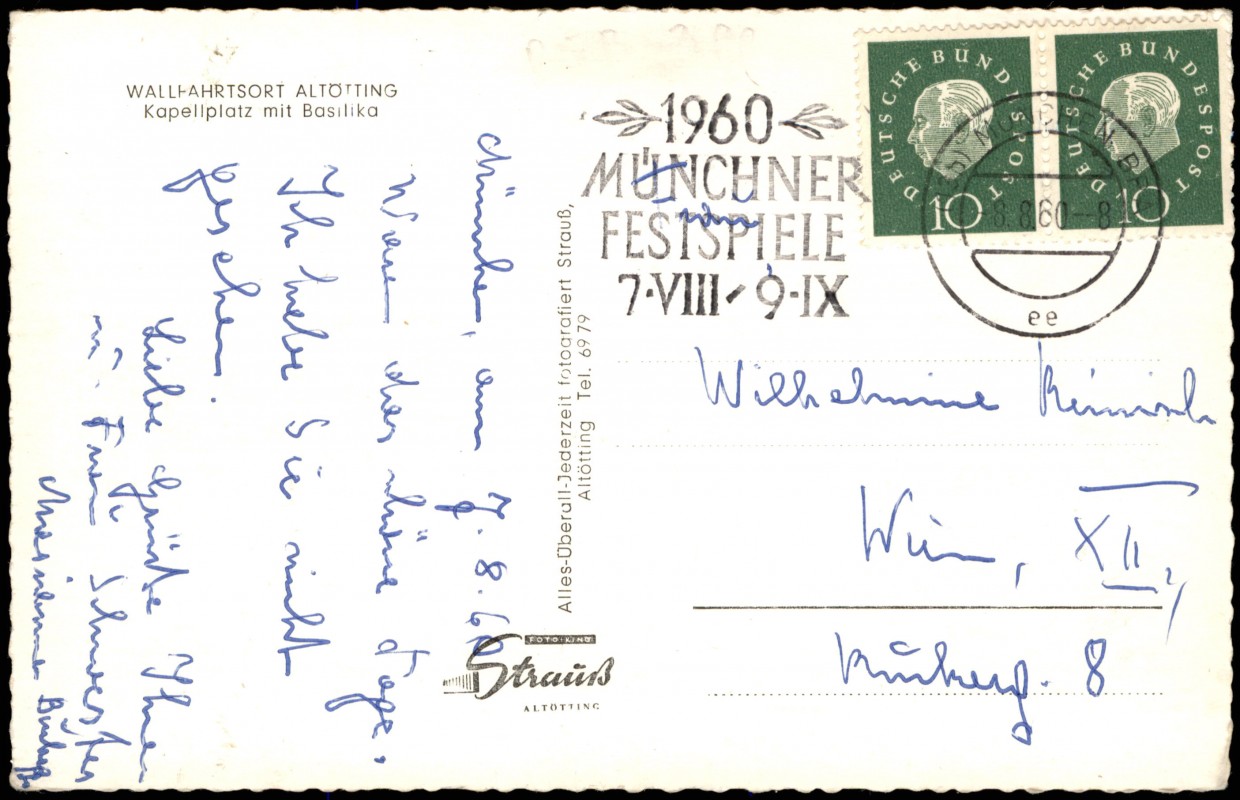 WALLFAHRTSORT ALTÖTTING
Kapellplatz mit Basilika
München, am 7.8.60
Waren das schöne Tage,
Ich habe Sie nicht
gesehen.
Liebe Grüße Ihnen
u. Ihrer Schwester
Alles-Überall-Jederzeit fotografiert Strauß,
Altötting Tel. 6979
FOTO-KINO
Strauß
ALTÖTTING
1960
MÜNCHNER
FESTSPIELE
7·VIII - 9·IX
DEUTSCHE BUNDESPOST
10
DEUTSCHE BUNDESPOST
10
MÜNCHEN
-8.8.60--8
ee
Frau
Wilhelmine
Wien, XII,
8